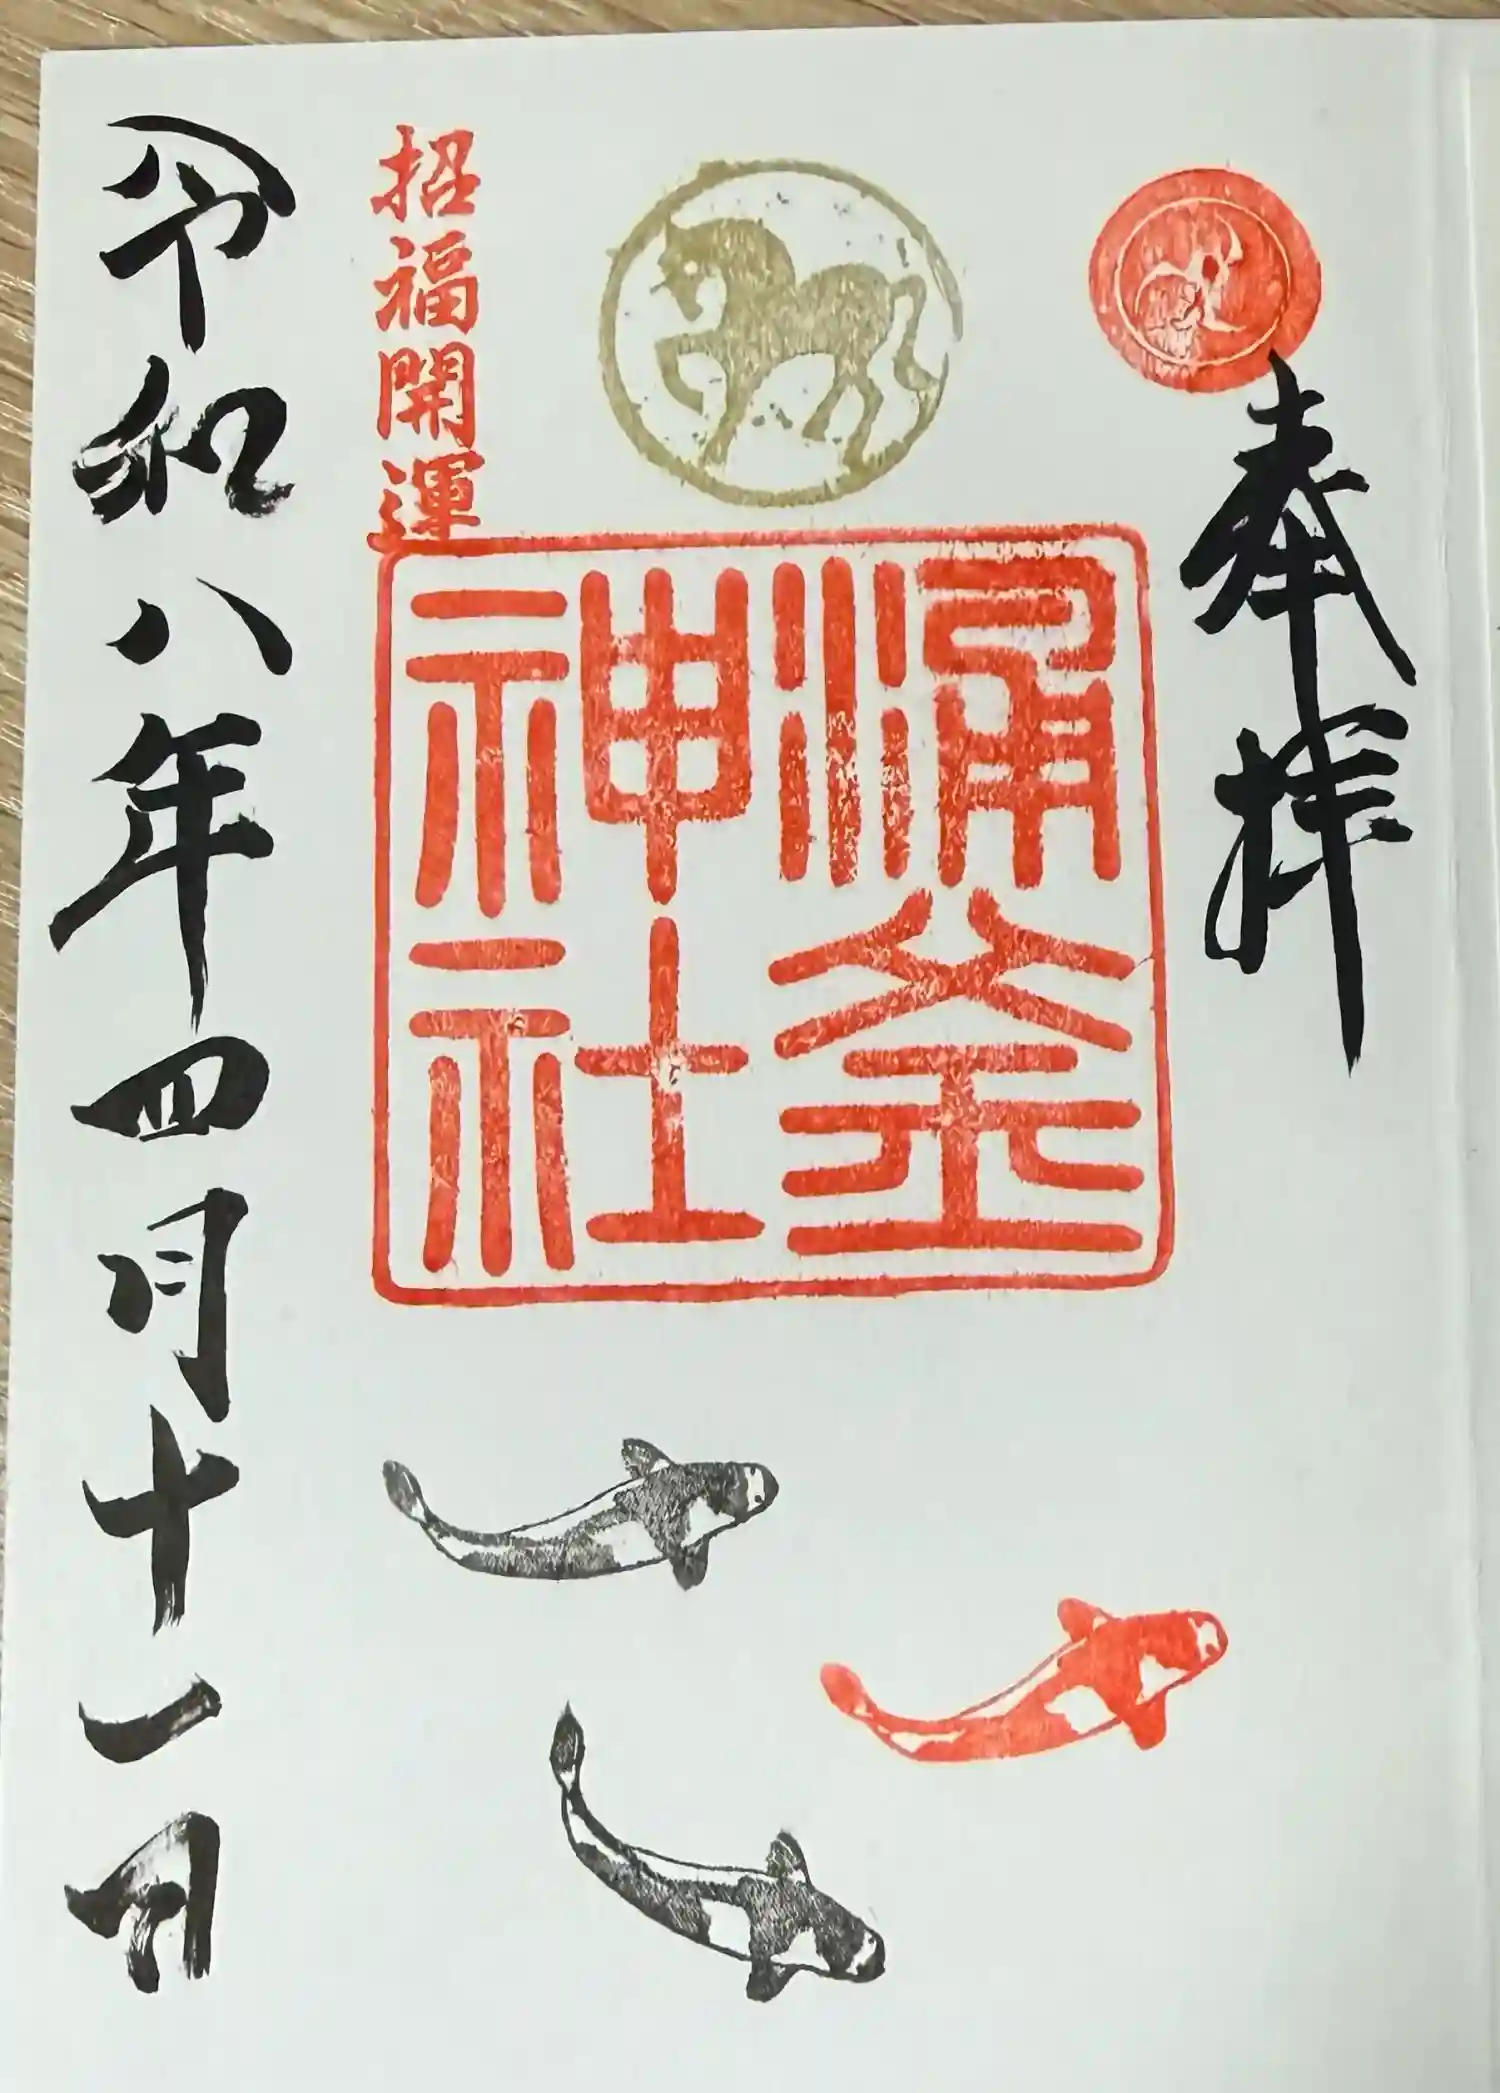 奉拝
涌釜
神社
招福開運
令和八年四月十一日